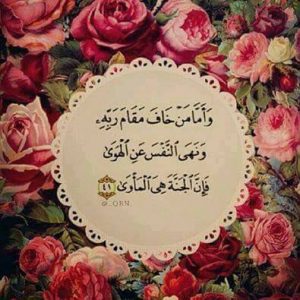 وَأَمَّا مَنْ خَافَ مَقَامَ رَبِّهِۦ
وَنَهَى ٱلنَّفْسَ عَنِ ٱلْهَوَىٰ
فَإِنَّ ٱلْجَنَّةَ هِىَ ٱلْمَأْوَىٰ ٤١
@_QRN_